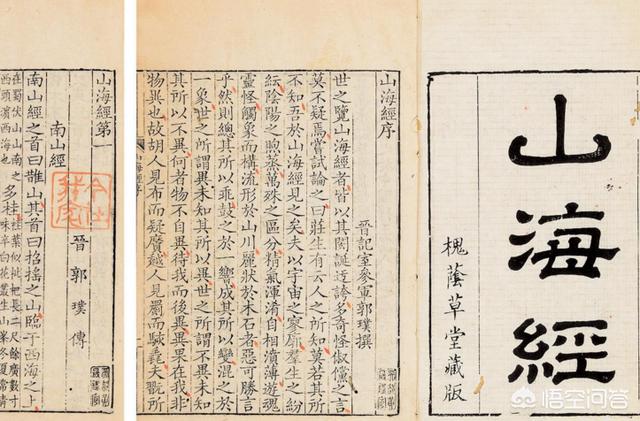 山海經
槐蔭草堂藏版
山海經序
晉記室參軍郭璞撰
世之覽山海經者皆以其閎誕迂誇多奇怪俶儻之言
莫不疑焉嘗試論之曰莊生有云人之所知莫若其所
不知吾於山海經見之矣夫以宇宙之寥廓羣生之紛
紜陰陽之煦蒸萬殊之區分精氣渾淆自相濆薄遊魂
靈怪觸象而構流形於山川麗狀於木石者惡可勝言
乎然則總其所以乖鼓之於一響成其所以變混之於
一象世之所謂異未知其所以異世之所謂不異未知
其所以不異何者物不自異待我而後異異果在我非
物異也故胡人見布而疑黂越人見罽而駭毳夫翫所
山海經第一
南山經
晉郭璞傳
南山經之首曰䧿山其首曰招搖之山臨于西海之上
在蜀伏山山南之西頭濱西海也多桂桂葉似枇杷長二尺餘廣數寸味辛白花叢生山峯冬夏常青
悟空问答